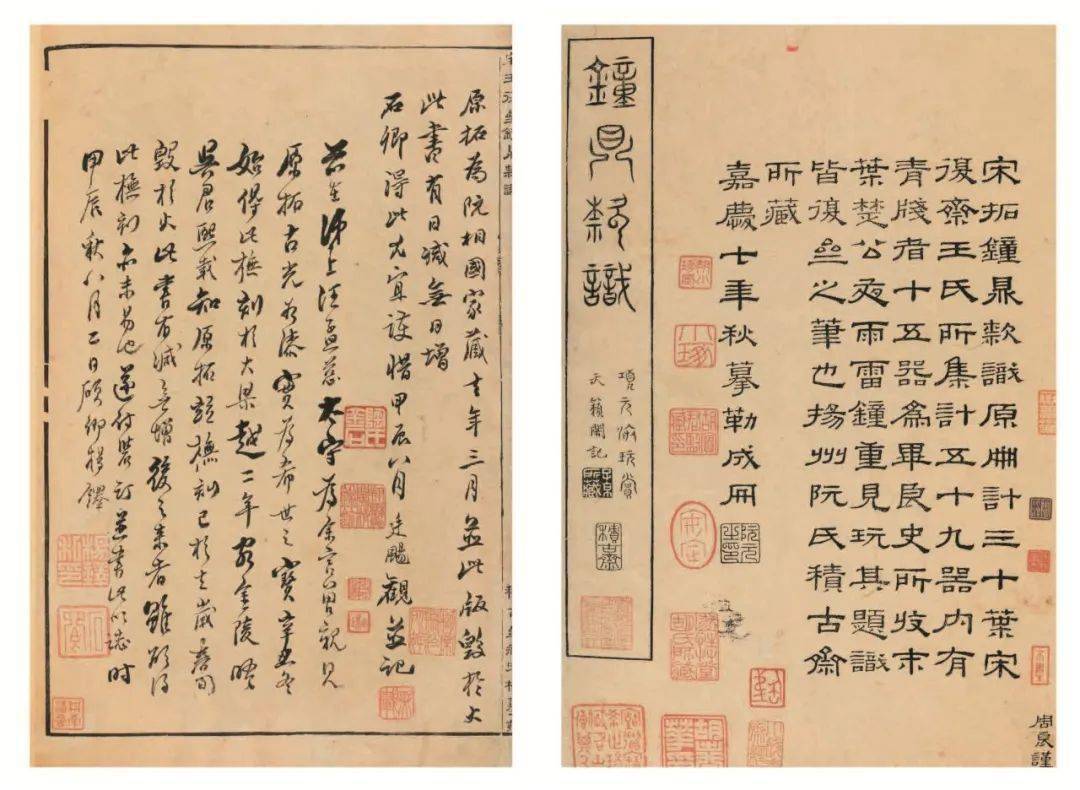 宋拓鐘鼎款識原冊計三十葉宋
復齋王氏所集計五十九器內有
青牋者十五器為畢良史所收末
葉楚公夜雨雷鐘重見玩其題識
皆復齋之筆也揚州阮氏積古齋
所藏
嘉慶七年秋摹勒成冊
阮元之印
鐘鼎款識
項元汴玩賞
天籟閣記
子京所藏
積古齋
原拓為阮相國家藏去年三月並此版毀於火
此書有日減無日增
石卿得此尤宜護惜甲辰八月廷颺觀並記
昔在沛上汪孟慈太守為余言曾親見
原拓古光如漆實為希世之寶辛丑冬
始得此橅刻於大梁越二年客金陵晤
吳君熙載知原拓暨橅刻已於去歲春間
毀於火此書有減無增後之來者雖欲得
此橅刻亦未易也遂付裝訂並書此以誌時
甲辰秋八月二日碩卿楊鐸